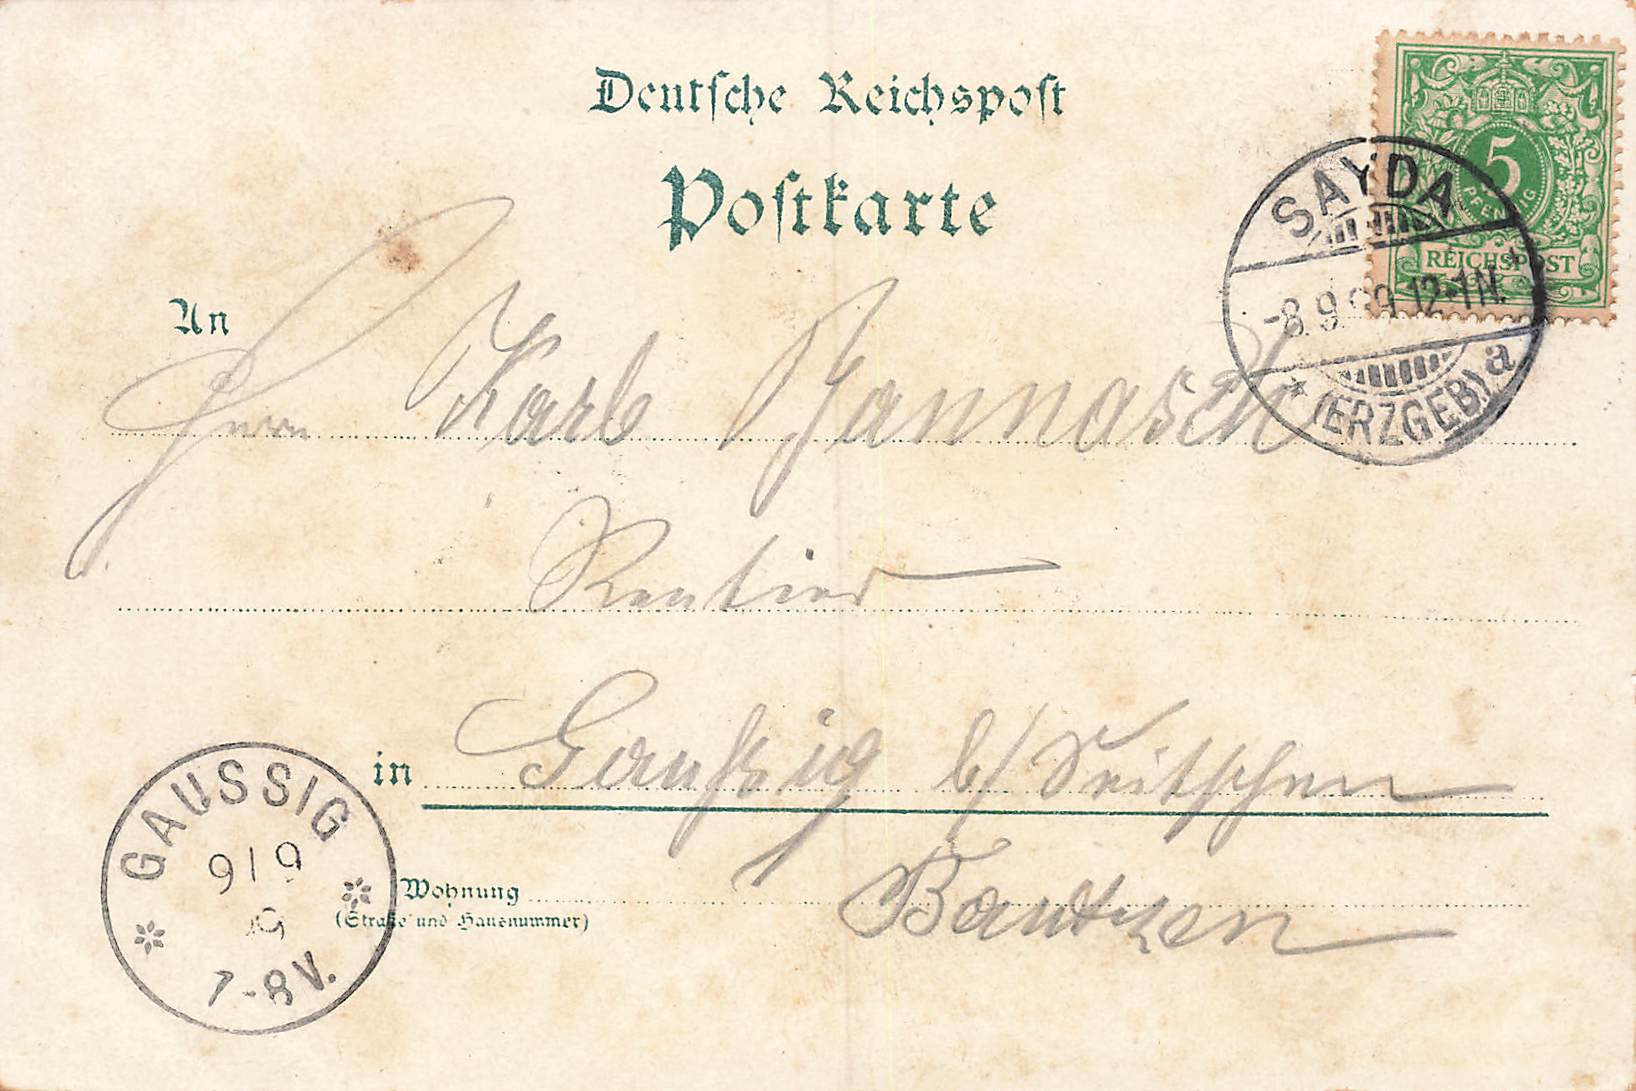 Deutsche Reichspost
Postkarte
5
PFENNIG
REICHSPOST
SAYDA
-8.9.99.12-1N.
* (ERZGEB.) a
An
Herrn Karl Jannasch
Rentier
in Gaußig b/ Seitschen
Bautzen
Wohnung
(Straße und Hausnummer)
GAUSSIG
9/9
99
7-8V.